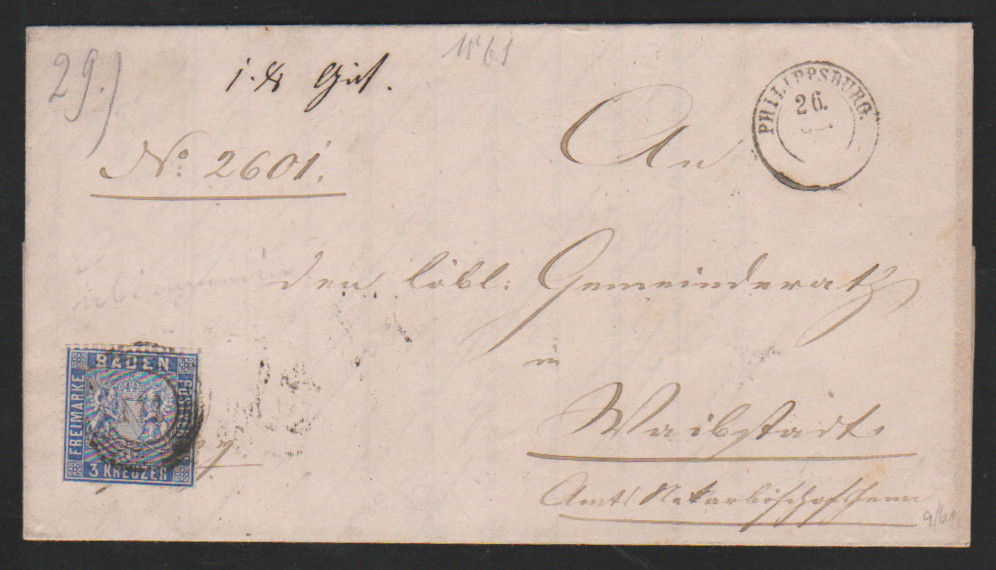 29.)
1861
PHILIPPSBURG.
26.
No: 2601.
An
den löbl: Gemeinderath
in
Waibstadt
Amts Nekarbischofsheim
9/61
BADEN
FREIMARKE
3 KREUZER